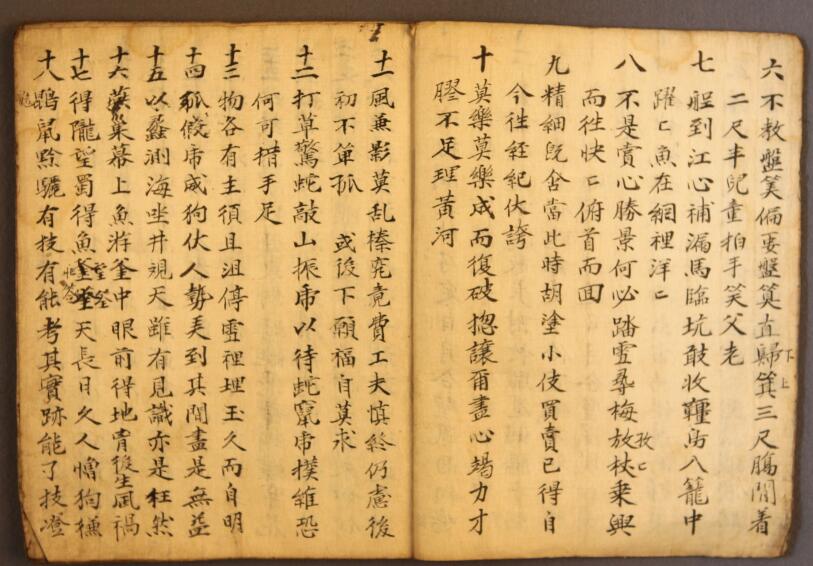 六不教盤筭倆要盤筭直歸箕三尺腸閒着
二尺半兒童拍手笑父老
七 到江心補漏馬臨坑敢收韁鳥入籠中
躍匕魚在網裡洋匕
八不是賞心勝景何必踏雪尋梅放杖乗興
而徃快匕俯首而回
九精細既舍當此時胡塗小伎買賣已得自
今徃經紀伏誇
十莫樂莫樂成而復破揔讓爾盡心竭力才
膠不足理黃河
十一風兼影莫乱搸究竟費工夫慎終仍慮後
初不單孤 或後下願福自莫求
十二打草驚蛇敲山振虎以待蛇竄虎撲雖恐
何可措手足
十三物各有主須且沮停雪裡埋玉久而自明
十四狐假虎威狗仗人勢美到其間盡是無益
十五以蠡測海坐井視天雖有見識亦是枉然
十六燕巢幕上魚游釜中眼前得地背後生風禍
十七得隴望蜀得魚 天長日久人憎狗嫌
十八鼯鼠黔驢有技有能考其實跡能了技